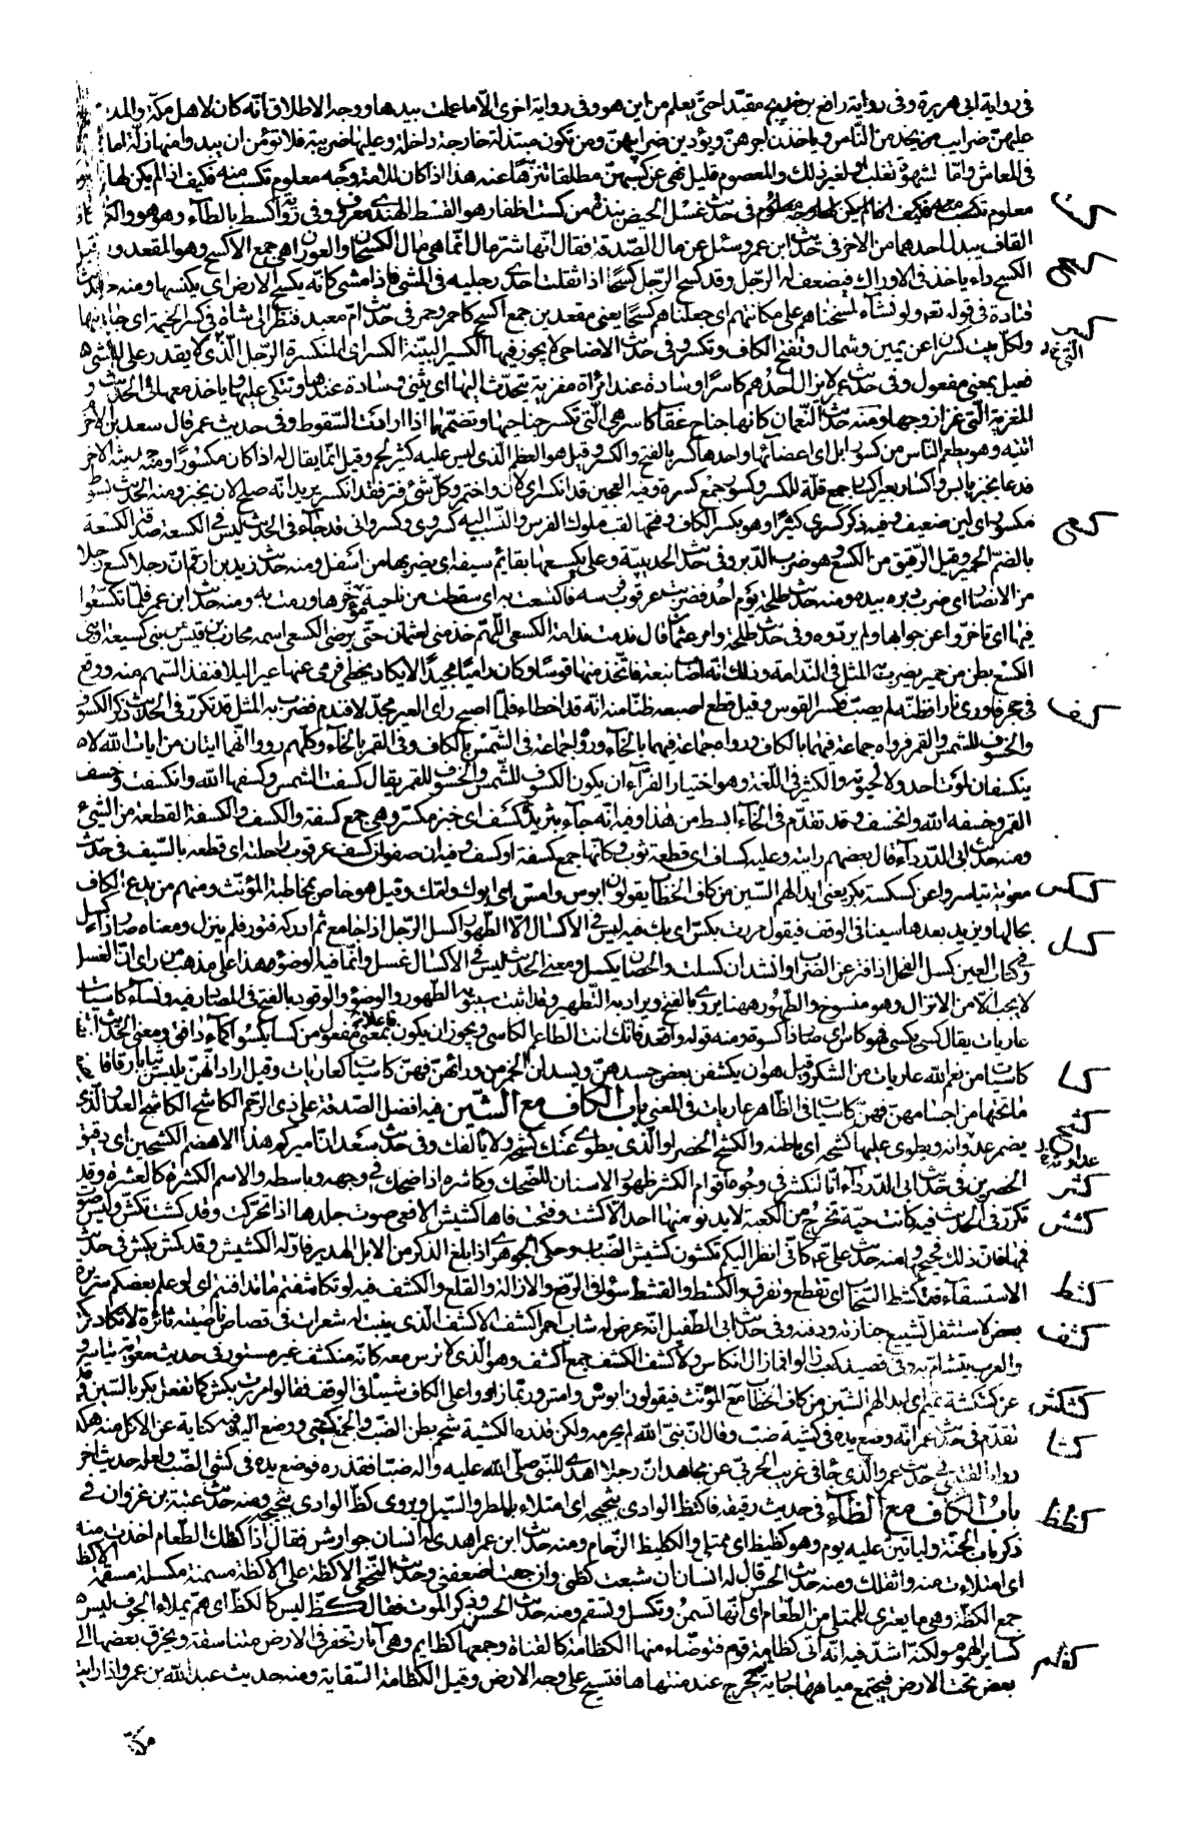 فى رواية ابى هريرة وفى رواية رافع بن خديج مقيّدا حتى يعلم من اين هو وفى رواية اخرى الّا ما عملت بيدها ووجه الاطلاق انّه كان لاهل مكّة والمد
عليهنّ ضرايب يخد من النّاس وياخذن اجرهنّ ويؤدين ضرايبهنّ ومن تكون متبذلة خارجة داخلة وعليها ضريبة فلا تؤمن ان يبدو منها زلّة اما
فى المعاش وامّا لشهوة تغلب او لغير ذلك والمعصوم قليل نهى عن كسبهنّ مطلقا تنزّها عنه هذا اذا كان للامة وجه معلوم تكسب منه فكيف اذا لم يكن لها
كست معلوم تكسب منه فى حديث غسل الحيض نبذة من كست اظفار هو القسط الهندى معروف وفى رواية كسط بالطاء وهو هو والكاف
القاف يبدل احدهما من الاخر فى حديث ابن عمر وسئل عن مال الصّدقة فقال انّها شرّ مال انّما هى مال الكسحان والعوران هى جمع الاكسح وهو المقعد وقيل
كسح الكسح داء ياخذ فى الاوراك فيضعف له الرّجل وقد كسح الرّجل كسحًا اذا ثقلت احدى رجليه فى المشى فاذا مشى كانّه يكسح الارض اى يكنسها ومنه حديث
قتادة فى قوله تعو ولو نشاء لمسخناهم على مكانتهم اى جعلناهم كسحًا يعنى مقعدين جمع اكسح كاحمر وحمر فى حديث امّ معبد فنظر الى شاة فى كسر الخيمة اى جانبها
كسر ولكلّ بيت كسران عن يمين وشمال وتفتح الكاف وتكسر وفى حديث الاضاحى لا يجوز فيها الكسير البيّنة الكسر اى المنكسرة الرّجل الّذى لا يقدر على المشى
فعيل بمعنى مفعول وفى حديث عمر لا يزال احدهم كاسرًا وسادة عند امراة مغزية يتحدّث اليها اى يثنى وسادة عندها ويتكى عليها ياخذ معها فى الحديث و
المغزية الّتى غزا زوجها ومنه حديث النّعمان كانها جناح عقاب كاسر هى الّتى تكسر جناحيها وتضمّهما اذا ارادت السّقوط وفى حديث عمر قال سعد بن الاخر
اتيته وهو يطعم النّاس من كسور ابل اى اعضائها واحدها كسر بالفتح والكسر وقيل هو العظم الّذى ليس عليه كثير لحم وقيل انّما يقال له اذا كان مكسورًا ومنه حديثه الاخر
قدعا بخبز يابس واكسار بعير اكسار جمع قلّة للكسر وكسور جمع كسرة وفيه العجين قد انكسر اى لان واختمر وكلّ شئ فتر فقد انكسر يريد انّه صلح لان يخبز ومنه الحديث بسوط
مكسور اى لين ضعيف وفيه ذكر كسرى كثيرًا وهو بكسر الكاف وفتحها لقب ملوك الفرس والنّسب اليه كسروى وكسروانى قد جاء فى الحديث ليس فى الكسعة صدقة الكسعة
كسع بالضّم الحمير وقيل الرّقيق من الكسع وهو ضرب الدّبر وفى حديث الحديبيّة وعلى يكسعها بقائم سيفه اى يضربها من اسفل ومنه حديث زيد بن ارقم انّ رجلا كسع رجلا
من الانصار اى ضرب دبره بيده ومنه حديث طلحة يوم احد فضربت عرقوب فرسه فاكتسعت به اى سقطت من ناحية مؤخّرها ورمت به ومنه حديث ابن عمر فلمّا تكسّعوا
فيها اى تاخّروا عن جوابها ولم يردّوه وفى حديث طلحة وامر عثمان قال ندمت ندامة الكسعى اللّهمّ خذ منى لعثمان حتّى يرضى الكسعى اسمه محارب بن قيس من بنى كسيعة او بنى
الكسع بطن من حمير يضرب به المثل فى النّدامة وذلك انّه اصاب نبعة فاتّخذ منها قوسًا وكان راميًا مجيدًا لا يكاد يخطى فرمى عنها عيرًا ليلا فنفذ السّهم منه ووقع
كسف فى حجر فاورى نارا فظنّه لم يصب فكسر القوس وقيل قطع اصبعه ظنّا منه انّه قد اخطاء فلمّا اصبح راى العير مجدّلا فندم فضرب به المثل قد تكرّر فى الحديث ذكر الكسوف
والخسوف للشّمس والقمر فرواه جماعة فيهما بالكاف ورواه جماعة فيهما بالخاء ورواه جماعة فى الشّمس بالكاف وفى القمر بالخاء وكلّهم رووا انّهما ايتان من ايات الله لا
ينكسفان لموت احد ولا لحيوته والكثير فى اللّغة وهو اختيار الفرّاء ان يكون الكسوف للشّمس والخسوف للقمر يقال كسفت الشمس وكسفها الله وانكسفت وخسف
القمر وخسفه الله وانخسف وقد تقدّم فى الخاء ابسط من هذا وفيه انّه جاء بثريدة كسف اى خبز مكسّر وهى جمع كسفة والكسف والكسفة القطعة من الشيئ
ومنه حديث ابى الدّرداء قال بعضهم رايته وعليه كساف اى قطعة ثوب وكانّها جمع كسفة او كسف وفيه ان صفوان كسف عرقوب راحلته اى قطعه بالسّيف فى حديث
كسكس معوية تياسروا عن كسكسة بكر يعنى ابدالهم السّين من كاف الخطاب يقولون ابوس وامّس اى ابوك وامّك وقيل هو خاص بمخاطبة المؤنّث ومنهم من يدع الكاف
كسل بحالها ويزيد بعدها سينا فى الوقف فيقول مررت بكس اى بك فيه ليس فى الاكسال الّا الطّهور اكسل الرّجل اذا جامع ثم ادركه فتور فلم ينزل ومعناه صار ذا كسل
وفى كتاب العين كسل الفحل اذا فتر عن الضّراب وانشد ان كسلت والحصان يكسل ومعنى الحديث ليس فى الاكسال غسل وانّما فيه الوضوء وهذا على مذهب من راى انّ الغسل
لا يجب الا من الانزال وهو منسوخ والطّهور ههنا يروى بالفتح ويراد به التّطهير وقد اثبت سيبويه الطّهور والوضوء والوقود بالفتح فى المصادر فيه ونساء كاسيات
عاريات يقال كسى يكسى فهو كاس اى صار ذا كسوة ومنه قوله واقعد فانّك انت الطاعم الكاسى ويجوز ان يكون فاعلا بمعنى مفعول من كسا يكسوا كماء دافق ومعنى الحديث انّها
كسا كاسيات من نعم الله عاريات من الشكر وقيل هو ان يكشفن بعض جسدهنّ ويسدلن الخمر من ورائهنّ فهنّ كاسيات كعاريات وقيل اراد انّهنّ يلبسن ثيابا رقاقا
ما تحتها من اجسامهن فهنّ كاسيات فى الظاهر عاريات فى المعنى باب الكاف مع الشين فيه افضل الصّدقة على ذى الرّحم الكاشح الكاشح العدو الّذى
كشح يضمر عداوته ويطوى عليها كشحه اى باطنه والكشح الخصر او الّذى يطوى عنك كشحه ولا يألفك وفى حديث سعد ان اميركم هذا لاهضم الكشحين اى دقيق
كشر الخصرين فى حديث ابى الدّرداء انّا لنكشر فى وجوه اقوام الكشر ظهور الاسنان للضّحك وكاشره اذا ضحك فى وجهه وباسطه والاسم الكشرة كالعشرة وقد
كشش تكرّر فى الحديث فيه كانت حيّة تخرج من الكعبة لا يدنو منها احد الا كشّت وفتحت فاها كشيش الافعى صوت جلدها اذا تحركت وقد كشّت تكشّ وليس صوت
فمها فانّ ذلك فحيحه ومنه حديث علىّ ع كانّى انظر اليكم تكشّون كشيش الضّباب وحكى الجوهرى اذا بلغ الذّكر من الابل الهدير فاوّله الكشيش وقد كشّ يكشّ فى حديث
كشط الاستسقاء فتكشط السّحاب اى تقطع وتفرّق والكشط والقشط سواء فى الرّفع والازالة والقلع والكشف فيه لو تكاشفتم ما تدافنتم اى لو علم بعضكم سريرة
كشف بعض لاستثقل تشييع جنازته ودفنه وفى حديث ابى الطّفيل انّه عرض له شاب احمر اكشف الاكشف الّذى ينبت له شعرات فى قصاص ناصيته ثائرة لا تكاد تسترسل
والعرب يتشأم به وفى قصيد كعب زالوا فما زال انكاس ولا كشف الكشف جمع اكشف وهو الّذى لا ترس معه كانّه منكشف غير مستور فى حديث معوية تياسروا
كشكش عن كشكشة تميم اى ابدالهم الشّين من كاف الخطاب مع المؤنّث فيقولون ابوش وامّش وربّما زادوا على الكاف شيئا فى الوقف فقالوا مررت بكش كما تفعل بكر بالسّين وقد
كشا تقدّم فى حديث عمر انّه وضع يده فى كشية ضبّ وقال انّ نبىّ الله لم يحرمه ولكن قذره الكشية شحم بطن الضّبّ والجمع كشى ووضع اليد فيه كناية عن الاكل منه هكذا
رواه القتيبى فى حديث عمر والّذى جاء فى غريب الحربىّ عن مجاهد انّ رجلا اهدى للنّبىّ صلّى الله عليه واله ضبّا فقذره فوضع يده فى كشيتى الضّب ولعله حديث اخر
كظظ باب الكاف مع الظاء فى حديث رقيقة فاكتظّ الوادى بثجيجه اى امتلاء بالمطر والسّيل ويروى كظّ الوادى بثجيجه ومنه حديث عتبة بن غزوان فى
ذكر باب الجنّة وليأتينّ عليه يوم وهو كظيظ اى ممتلئ والكظيظ الزّحام ومنه حديث ابن عمر اهدى له انسان جوارش فقال اذا كظّك الطّعام اخذت منه
اى امتلاءت منه واثقلك ومنه حديث الحسن قال له انسان ان شبعت كظّنى وان جعت اضعفنى وحديث النّخعى الاكظّة على الاكظّة مسمنة مكسلة مسقمة الاكظّة
جمع الكظّة وهى ما يعترى الممتلئ من الطّعام اى انّها تسمن وتكسل وتسقم ومنه حديث الحسن وذكر الموت فقال كظّ ليس كالكظّ اى همّ يملاء الجوف ليس
كظم كساير الهموم ولكنّه اشدّ فيه انّه اتى كظامة قوم فتوضّاء منها الكظامة كالقناة وجمعها كظايم وهى ابار تحفر فى الارض متناسقة ويخرق بعضها الى
بعض تحت الارض فيجتمع مياهها جارية ثم تخرج عند منتهاها فتسيح على وجه الارض وقيل الكظامة السّقاية ومنه حديث عبد الله بن عمرو اذا رايت
مكّة